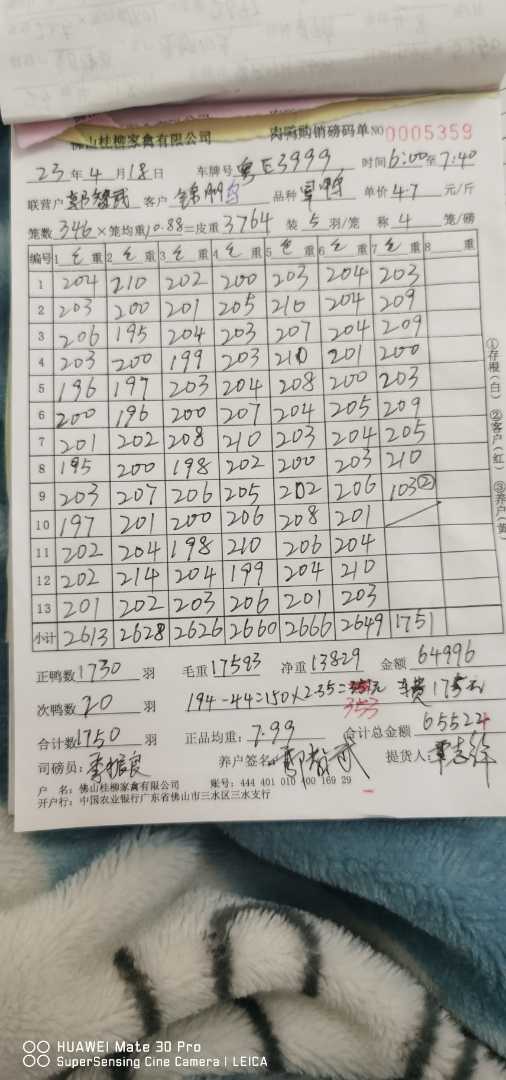 佛山桂柳家禽有限公司 肉鸭购销磅码单 NO 0005359
23年4月18日 车牌号 粤E3999 时间 6:00至7:40
联营户 客户 品种 单价 4.7 元/斤
笼数 346 × 笼均重 10.88 = 皮重 3764 装 5 羽/笼 称 4 笼/磅
编号 1 毛 重 2 毛 重 3 毛 重 4 毛 重 5 毛 重 6 毛 重 7 毛 重 8 重
1 204 210 202 200 203 204 203
2 203 200 201 205 210 204 209
3 206 195 204 203 207 204 209
4 203 200 199 203 210 201 200
5 196 197 203 204 208 200 203
6 200 196 200 207 204 205 209
7 201 202 208 210 203 204 205
8 195 200 198 202 200 203 210
9 203 207 206 205 202 206 103②
10 197 201 200 206 208 201
11 202 204 198 210 206 204
12 202 214 204 199 204 210
13 201 202 203 206 201 203
小计 2613 2628 2626 2660 2666 2649 1751
正鸭数 1730 羽 毛重 17593 净重 13829 金额 64996
次鸭数 20 羽 194-44=150×2.35= 353 元 车费175元
合计数 1750 羽 正品均重: 7.99 合计总金额 65524
司磅员: 养户签名: 提货人:
户 名: 佛山桂柳家禽有限公司 账号: 444 401 010 400 169 29
开户行: 中国农业银行广东省佛山市三水区三水支行
①存根(白) ②客户(红) ③养户(黄
HUAWEI Mate 30 Pro
SuperSensing Cine Camera | LEICA